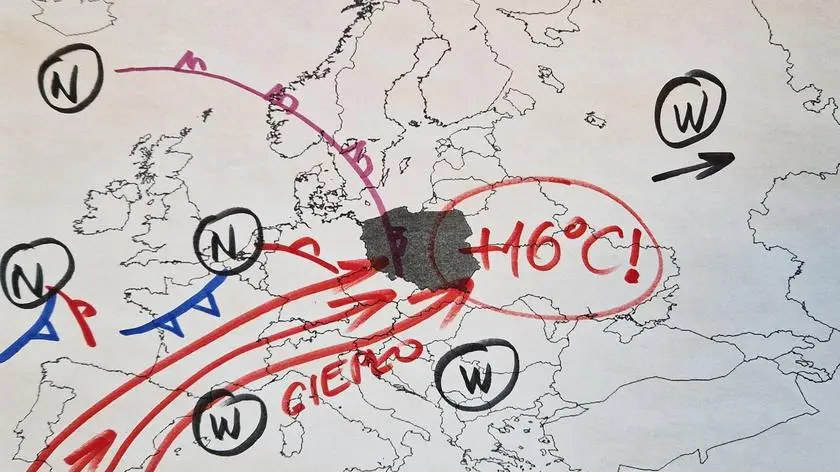 N
W
N
N
+16°C!
W
CIEPŁO
W